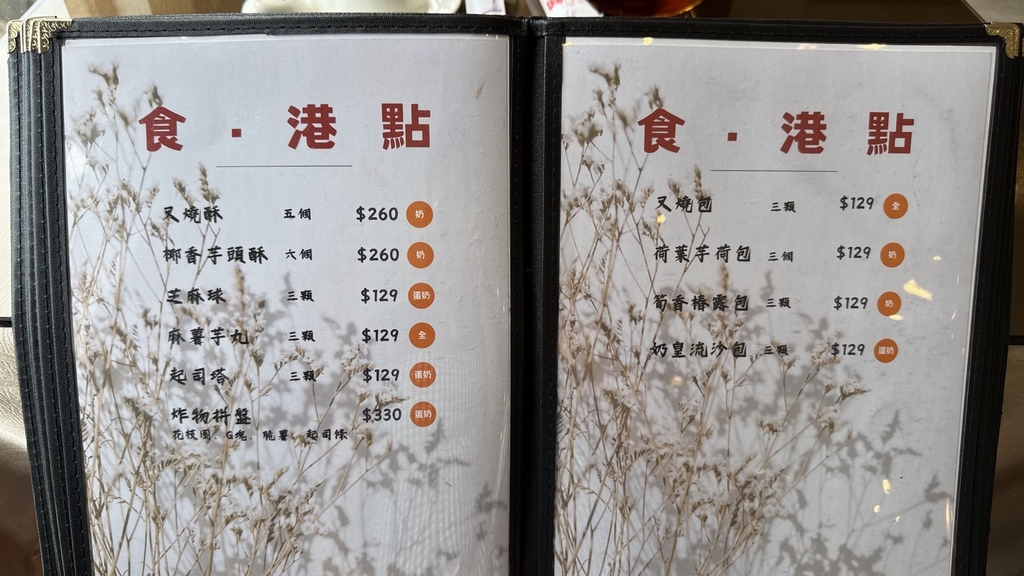 食・港點
叉燒酥 五個 $260 奶
椰香芋頭酥 六個 $260 奶
芝麻球 三顆 $129 蛋奶
麻薯芋丸 三顆 $129 全
起司塔 三顆 $129 蛋奶
炸物拼盤 $330 蛋奶
花枝圈、G塊、脆薯、起司條
食・港點
叉燒包 三顆 $129 全
荷葉芋荷包 三個 $129 奶
筍香椿露包 三顆 $129 奶
奶皇流沙包 三顆 $129 蛋奶